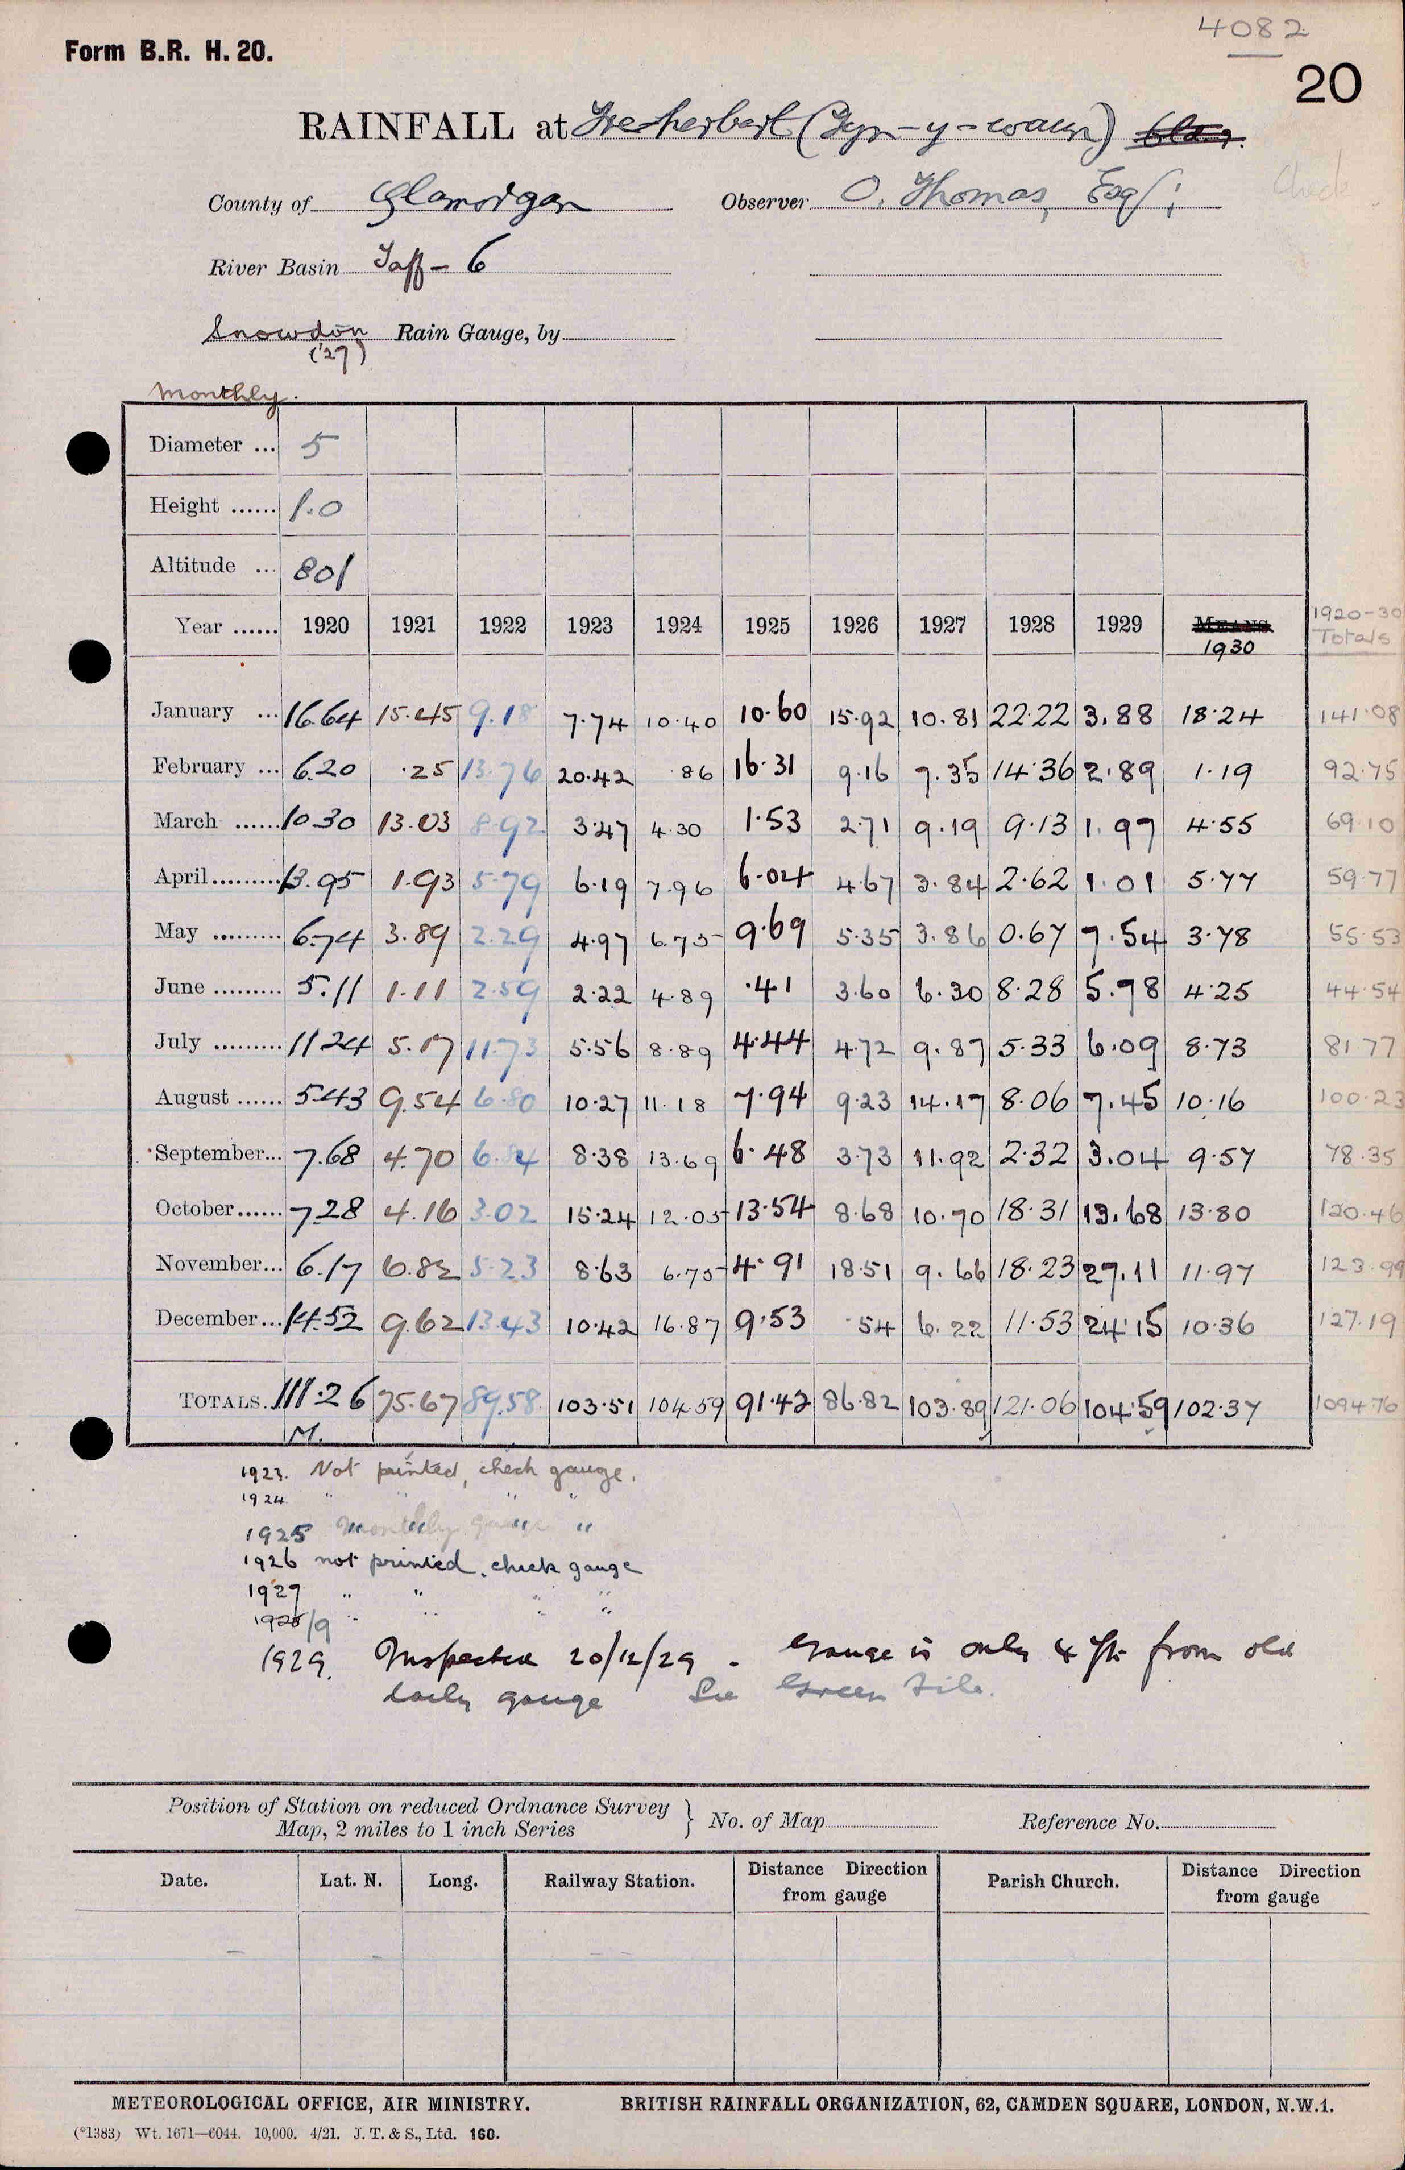 4082
Form B.R. H. 20.
20
RAINFALL at Treherbert (Tyn-y-waun)
Check
County of Glamorgan Observer O. Thomas, Esq;
River Basin Taff - 6
Snowdon Rain Gauge, by
('27)
Monthly.
Diameter ... 5
Height ...... 1.0
Altitude ... 801
Year ...... 1920 1921 1922 1923 1924 1925 1926 1927 1928 1929 MEANS 1930 1920-30 Totals
January ... 16.64 15.45 9.18 7.74 10.40 10.60 15.92 10.81 22.22 3.88 18.24 141.08
February ... 6.20 .25 13.76 20.42 .86 16.31 9.16 7.35 14.36 2.89 1.19 92.75
March ...... 10.30 13.03 8.92 3.47 4.30 1.53 2.71 9.19 9.13 1.97 4.55 69.10
April ......... 13.95 1.93 5.79 6.19 7.96 6.04 4.67 3.84 2.62 1.01 5.77 59.77
May ......... 6.74 3.89 2.29 4.97 6.75 9.69 5.35 3.86 0.67 7.54 3.78 55.53
June ......... 5.11 1.11 2.59 2.22 4.89 .41 3.60 6.30 8.28 5.78 4.25 44.54
July ......... 11.24 5.17 11.73 5.56 8.89 4.44 4.72 9.87 5.33 6.09 8.73 81.77
August ...... 5.43 9.54 6.80 10.27 11.18 7.94 9.23 14.17 8.06 7.45 10.16 100.23
September... 7.68 4.70 6.84 8.38 13.69 6.48 3.73 11.92 2.32 3.04 9.57 78.35
October...... 7.28 4.16 3.02 15.24 12.05 13.54 8.68 10.70 18.31 13.68 13.80 120.46
November... 6.17 6.82 5.23 8.63 6.75 4.91 18.51 9.66 18.23 27.11 11.97 123.99
December... 14.52 9.62 13.43 10.42 16.87 9.53 .54 6.22 11.53 24.15 10.36 127.19
TOTALS. 111.26 75.67 89.58 103.51 104.59 91.42 86.82 103.89 121.06 104.59 102.37 1094.76
M.
1923. Not printed, check gauge.
1924 " " " "
1925 Monthly gauge "
1926 not printed. check gauge
1927 " " " "
1928/9 " " " "
1929. Inspected 20/12/29 - Gauge is only 4 ft from old
daily gauge See Green File.
Position of Station on reduced Ordnance Survey
Map, 2 miles to 1 inch Series } No. of Map Reference No.
Date. Lat. N. Long. Railway Station. Distance Direction from gauge Parish Church. Distance Direction from gauge
METEOROLOGICAL OFFICE, AIR MINISTRY. BRITISH RAINFALL ORGANIZATION, 62, CAMDEN SQUARE, LONDON, N.W.1.
(*1383) Wt. 1671—6044. 10,000. 4/21. J. T. & S., Ltd. 160.